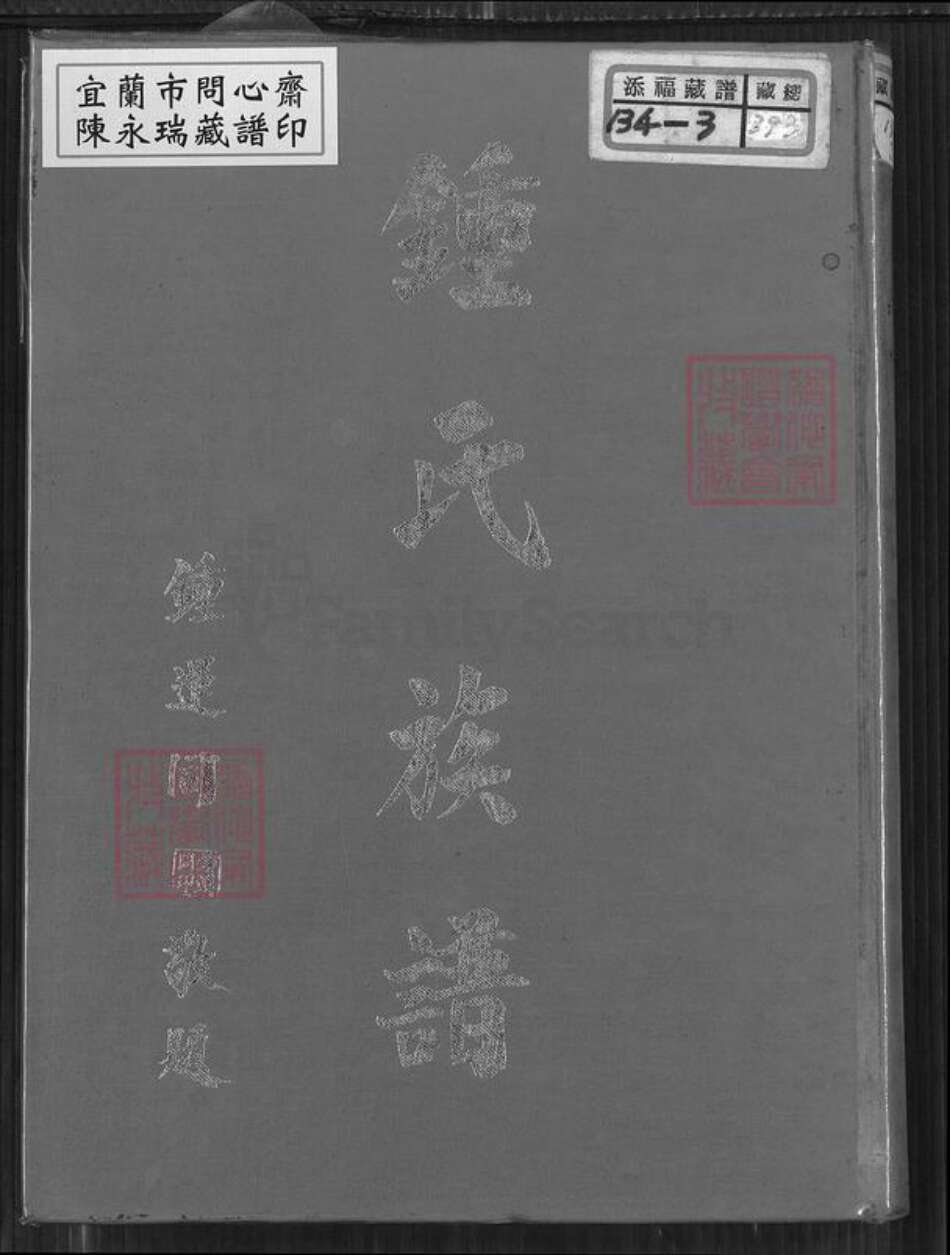 宜蘭市問心齋
陳永瑞藏譜印
添福藏譜 藏總
134-3 393
鍾氏族譜
鍾運
敬題
FamilySearch